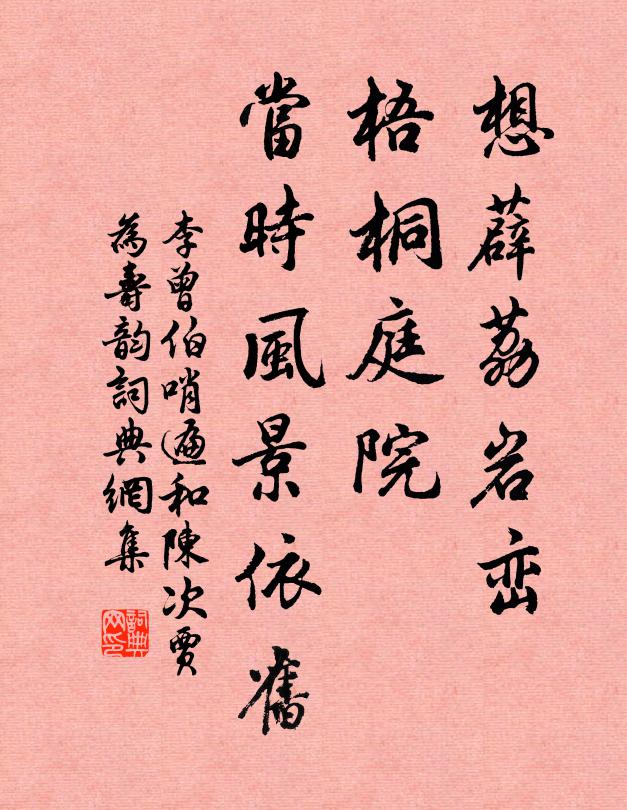 想薜荔岩峦
梧桐庭院
當時風景依舊
李曾伯哨遍和陳次賈
為壽韵詞典網集
詞典网印